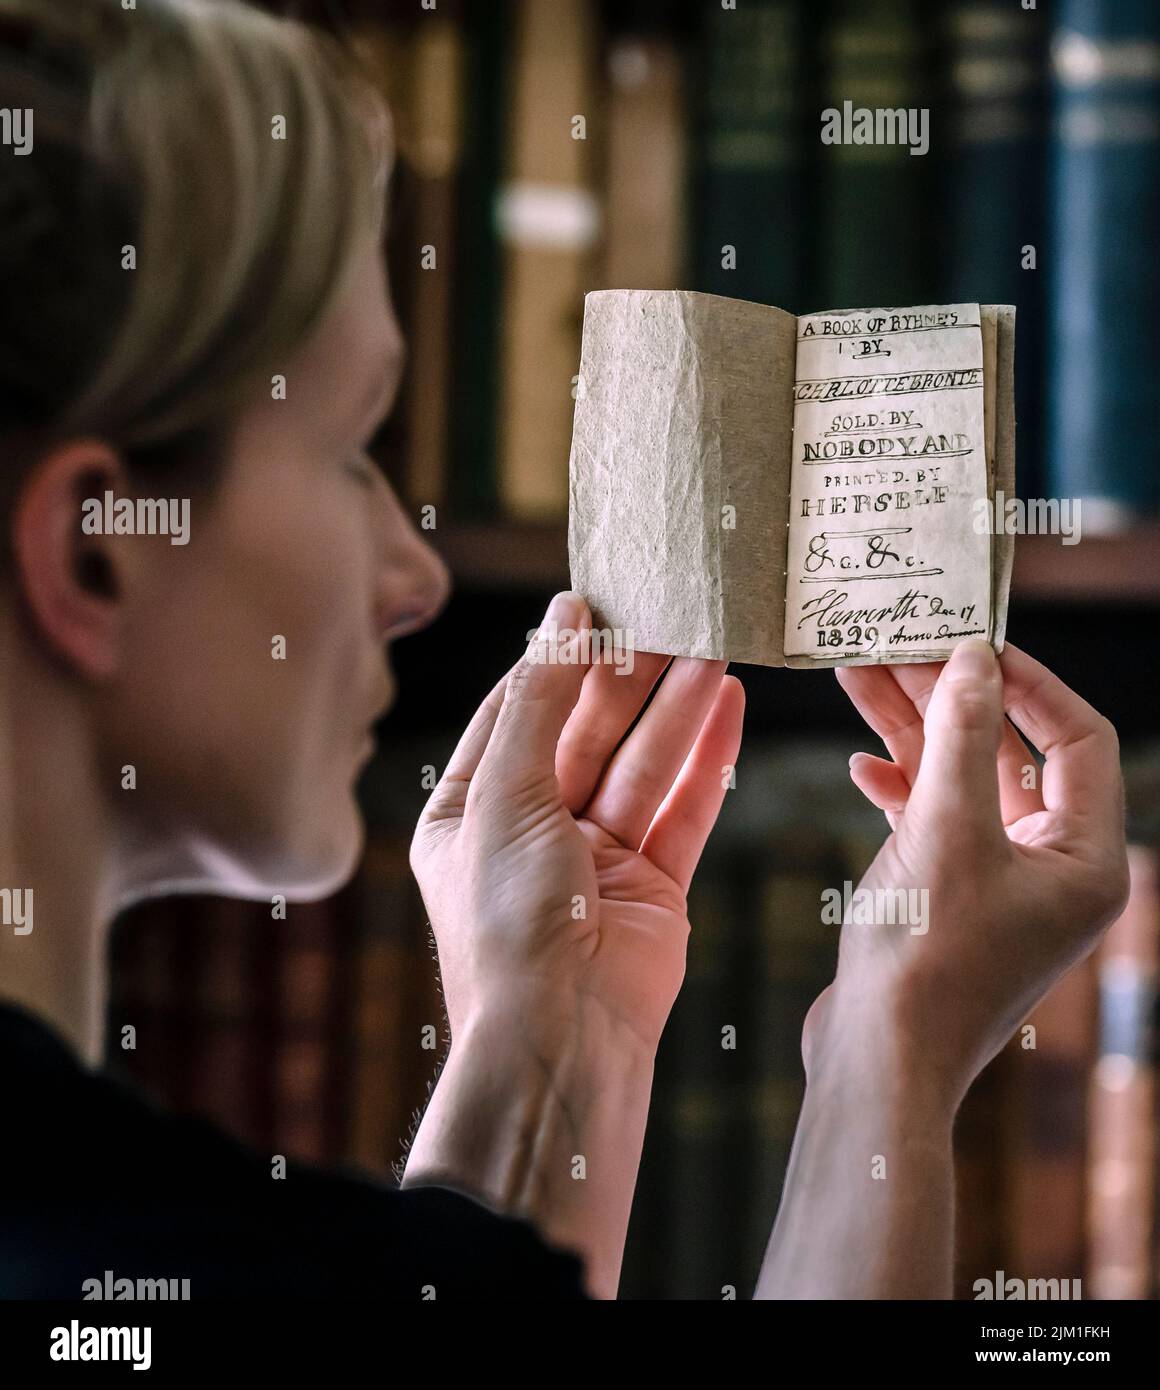 A BOOK OF RYHMES
BY
CHARLOTTE BRONTE
SOLD. BY
NOBODY. AND
PRINTED. BY
HERSELF
&c. &c.
Haworth Dec 17
1829 Anno Domini
alamy
alamy
alamy
alamy
alamy
alamy
alamy
Image ID: 2JM1FKH
www.alamy.com